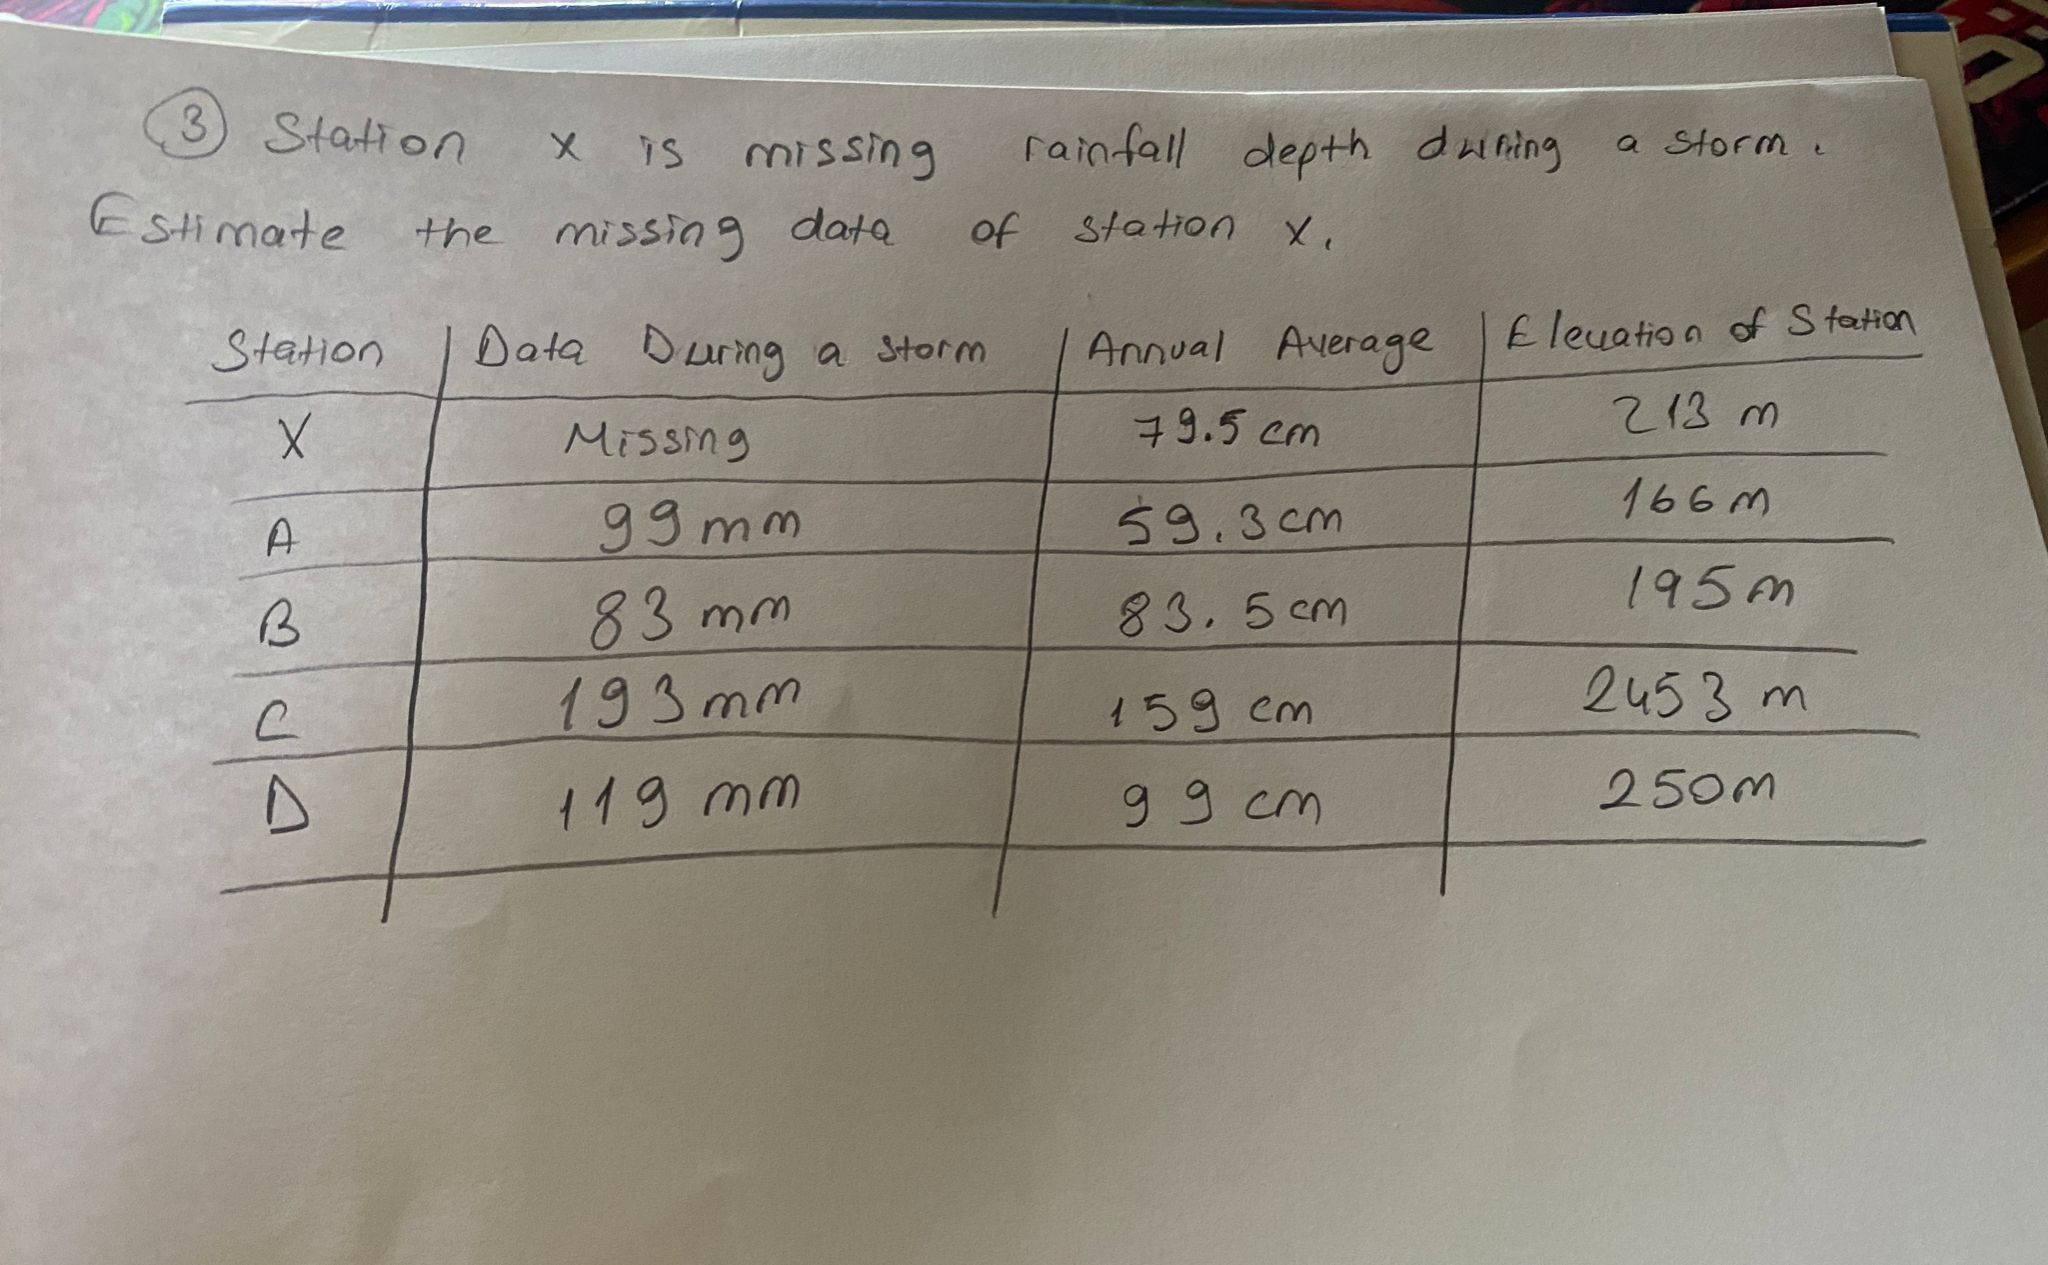 3 Station x is missing rainfall depth during a storm.
Estimate the missing data of station x.
Station | Data During a storm | Annual Average | Elevation of Station
X | Missing | 79.5 cm | 213 m
A | 99 mm | 59.3 cm | 166 m
B | 83 mm | 83.5 cm | 195 m
C | 193 mm | 159 cm | 2453 m
D | 119 mm | 99 cm | 250 m